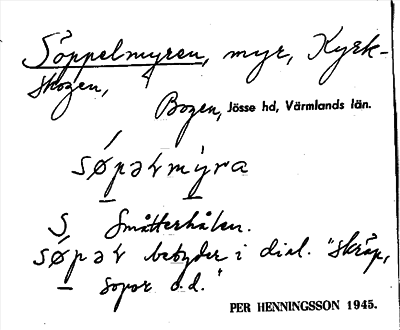 Söppelmyren, myr, Kyrk-
skogen,
Bogen, Jösse hd, Värmlands län.
søpəlmyra
S Småtterhålen.
søpəl betyder i dial. "skräp,
sopor o.d."
PER HENNINGSSON 1945.